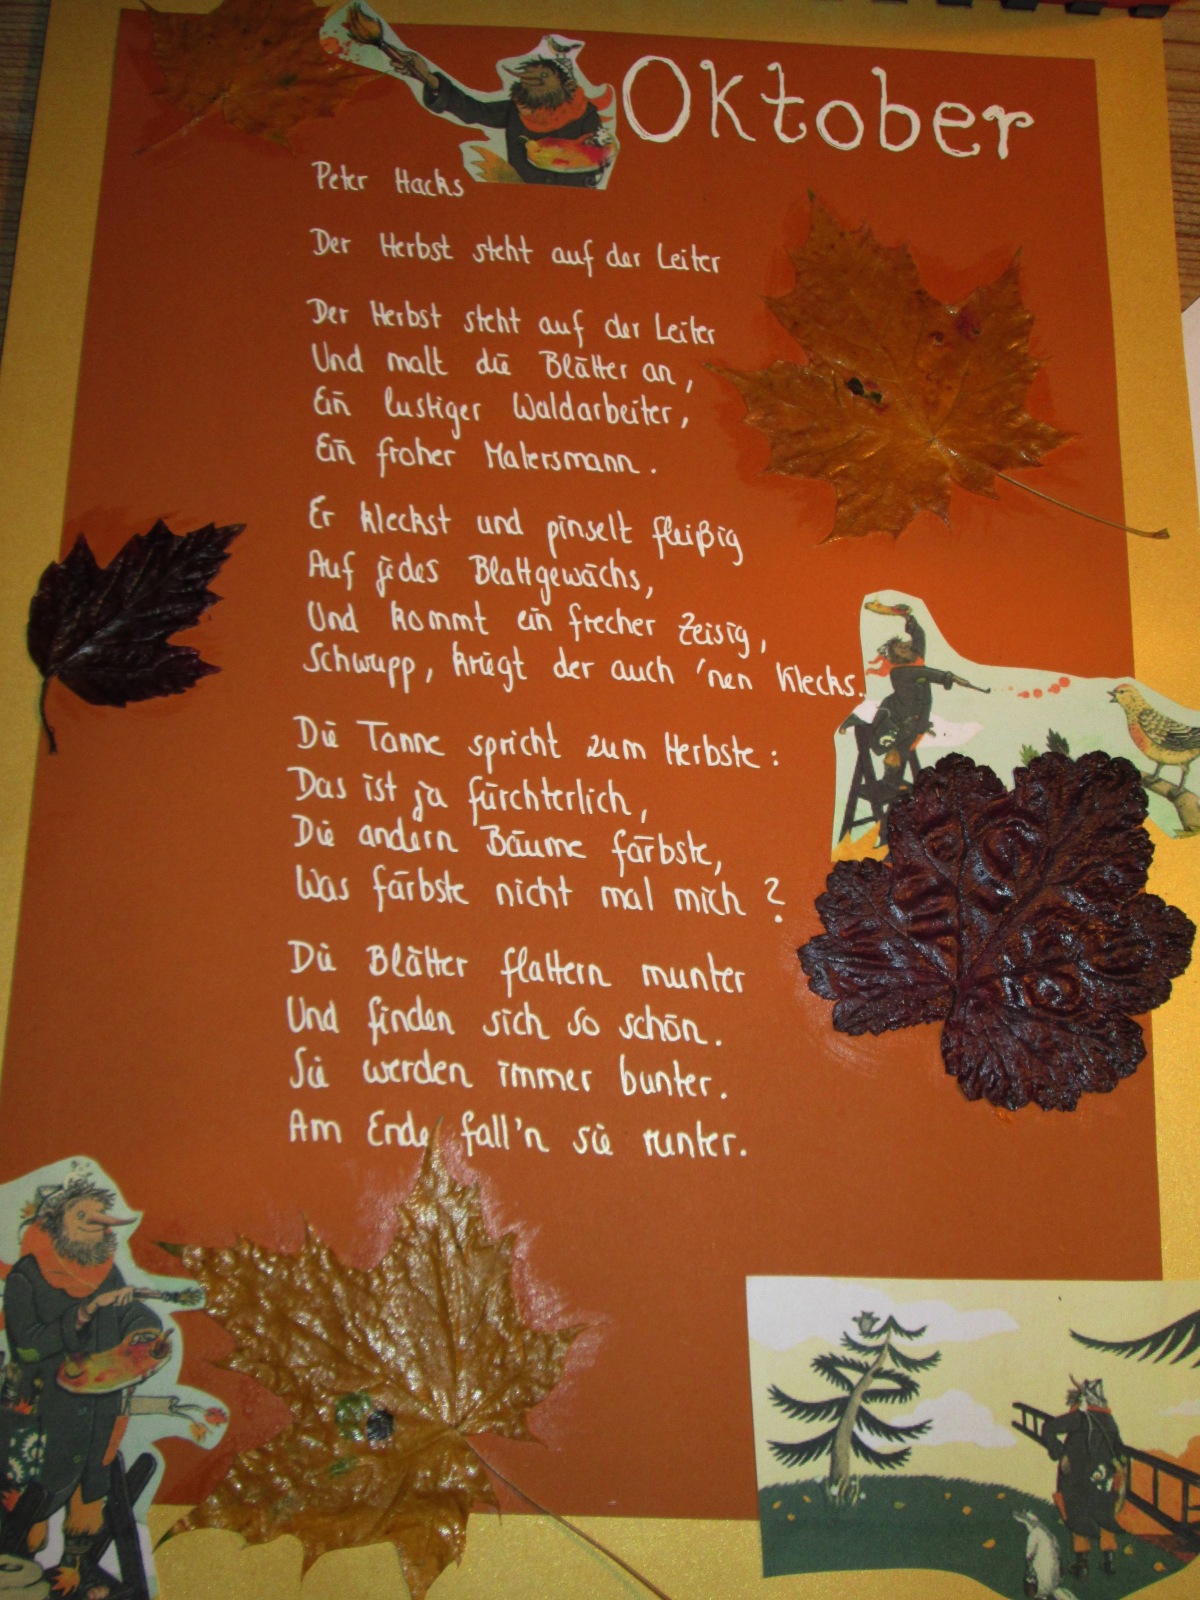 Oktober
Peter Hacks
Der Herbst steht auf der Leiter
Der Herbst steht auf der Leiter
Und malt die Blätter an,
Ein lustiger Waldarbeiter,
Ein froher Malersmann.
Er kleckst und pinselt fleißig
Auf jedes Blattgewächs,
Und kommt ein frecher Zeisig,
Schwupp, kriegt der auch 'nen Klecks.
Die Tanne spricht zum Herbste:
Das ist ja fürchterlich,
Die andern Bäume färbste,
Was färbste nicht mal mich?
Die Blätter flattern munter
Und finden sich so schön.
Sie werden immer bunter.
Am Ende fall'n sie runter.